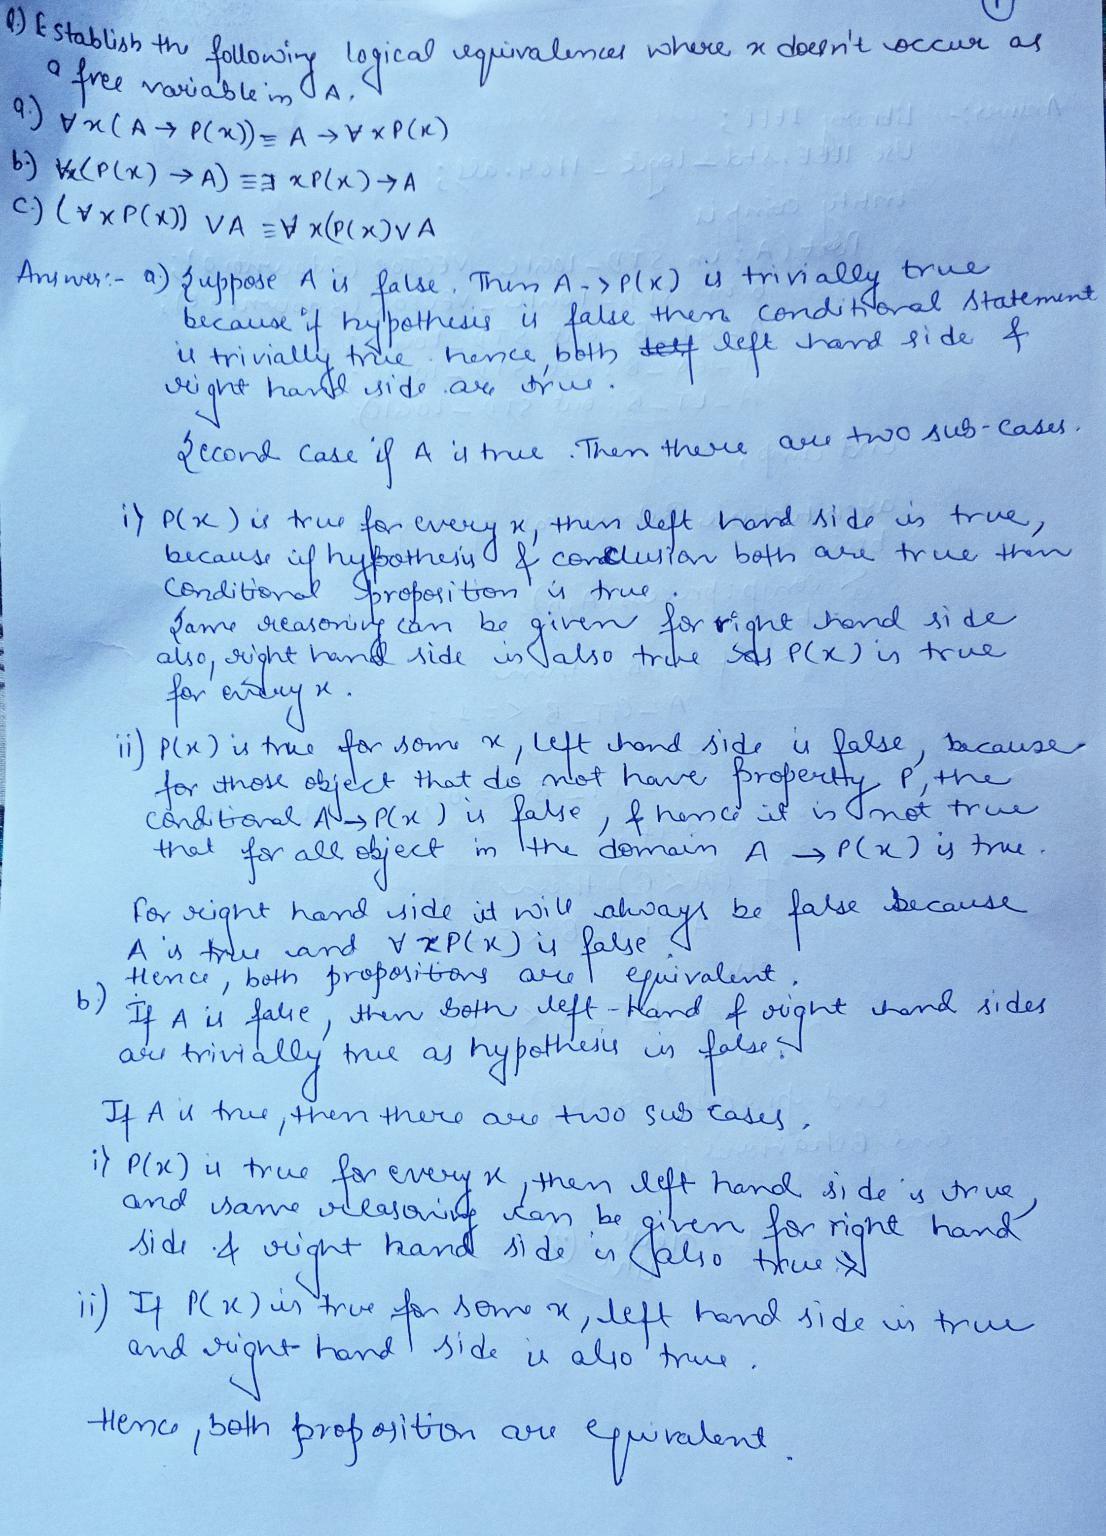 Q.) Establish the following logical equivalences where x doesn't occur as
a free variable in A.
a.) ∀x(A → P(x)) ≡ A → ∀xP(x)
b.) ∀x(P(x) → A) ≡ ∃xP(x) → A
c.) (∀xP(x)) ∨A ≡ ∀x(P(x)∨A
Answer:- a.) Suppose A is false. Then A -> P(x) is trivially true
because if hypothesis is false then conditional statement
is trivially true hence, both left hand side &
right hand side are true.
Second case if A is true. Then there are two sub-cases.
i) P(x) is true for every x, then left hand side is true,
because if hypothesis & conclusion both are true then
conditional proposition is true.
Same reasoning can be given for right hand side
also, right hand side is also true as P(x) is true
for every x.
ii) P(x) is true for some x, left hand side is false, because
for those object that do not have property P, the
conditional A → P(x) is false, & hence it is not true
that for all object in the domain A → P(x) is true.
For right hand side it will always be false because
A is true and ∀xP(x) is false.
Hence, both propositions are equivalent.
b) If A is false, then both left-hand & right hand sides
are trivially true as hypothesis is false.
If A is true, then there are two sub cases.
i) P(x) is true for every x, then left hand side is true,
and same reasoning can be given for right hand
side & right hand side is also true.
ii) If P(x) is true for some x, left hand side is true
and right hand side is also true.
Hence, both proposition are equivalent.